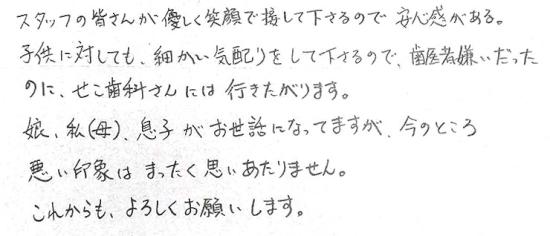 スタッフの皆さんが優しく笑顔で接して下さるので安心感がある。
子供に対しても、細かい気配りをして下さるので、歯医者嫌いだった
のに、せこ歯科さんには行きたがります。
娘、私(母)、息子がお世話になってますが、今のところ
悪い印象はまったく思いあたりません。
これからも、よろしくお願いします。